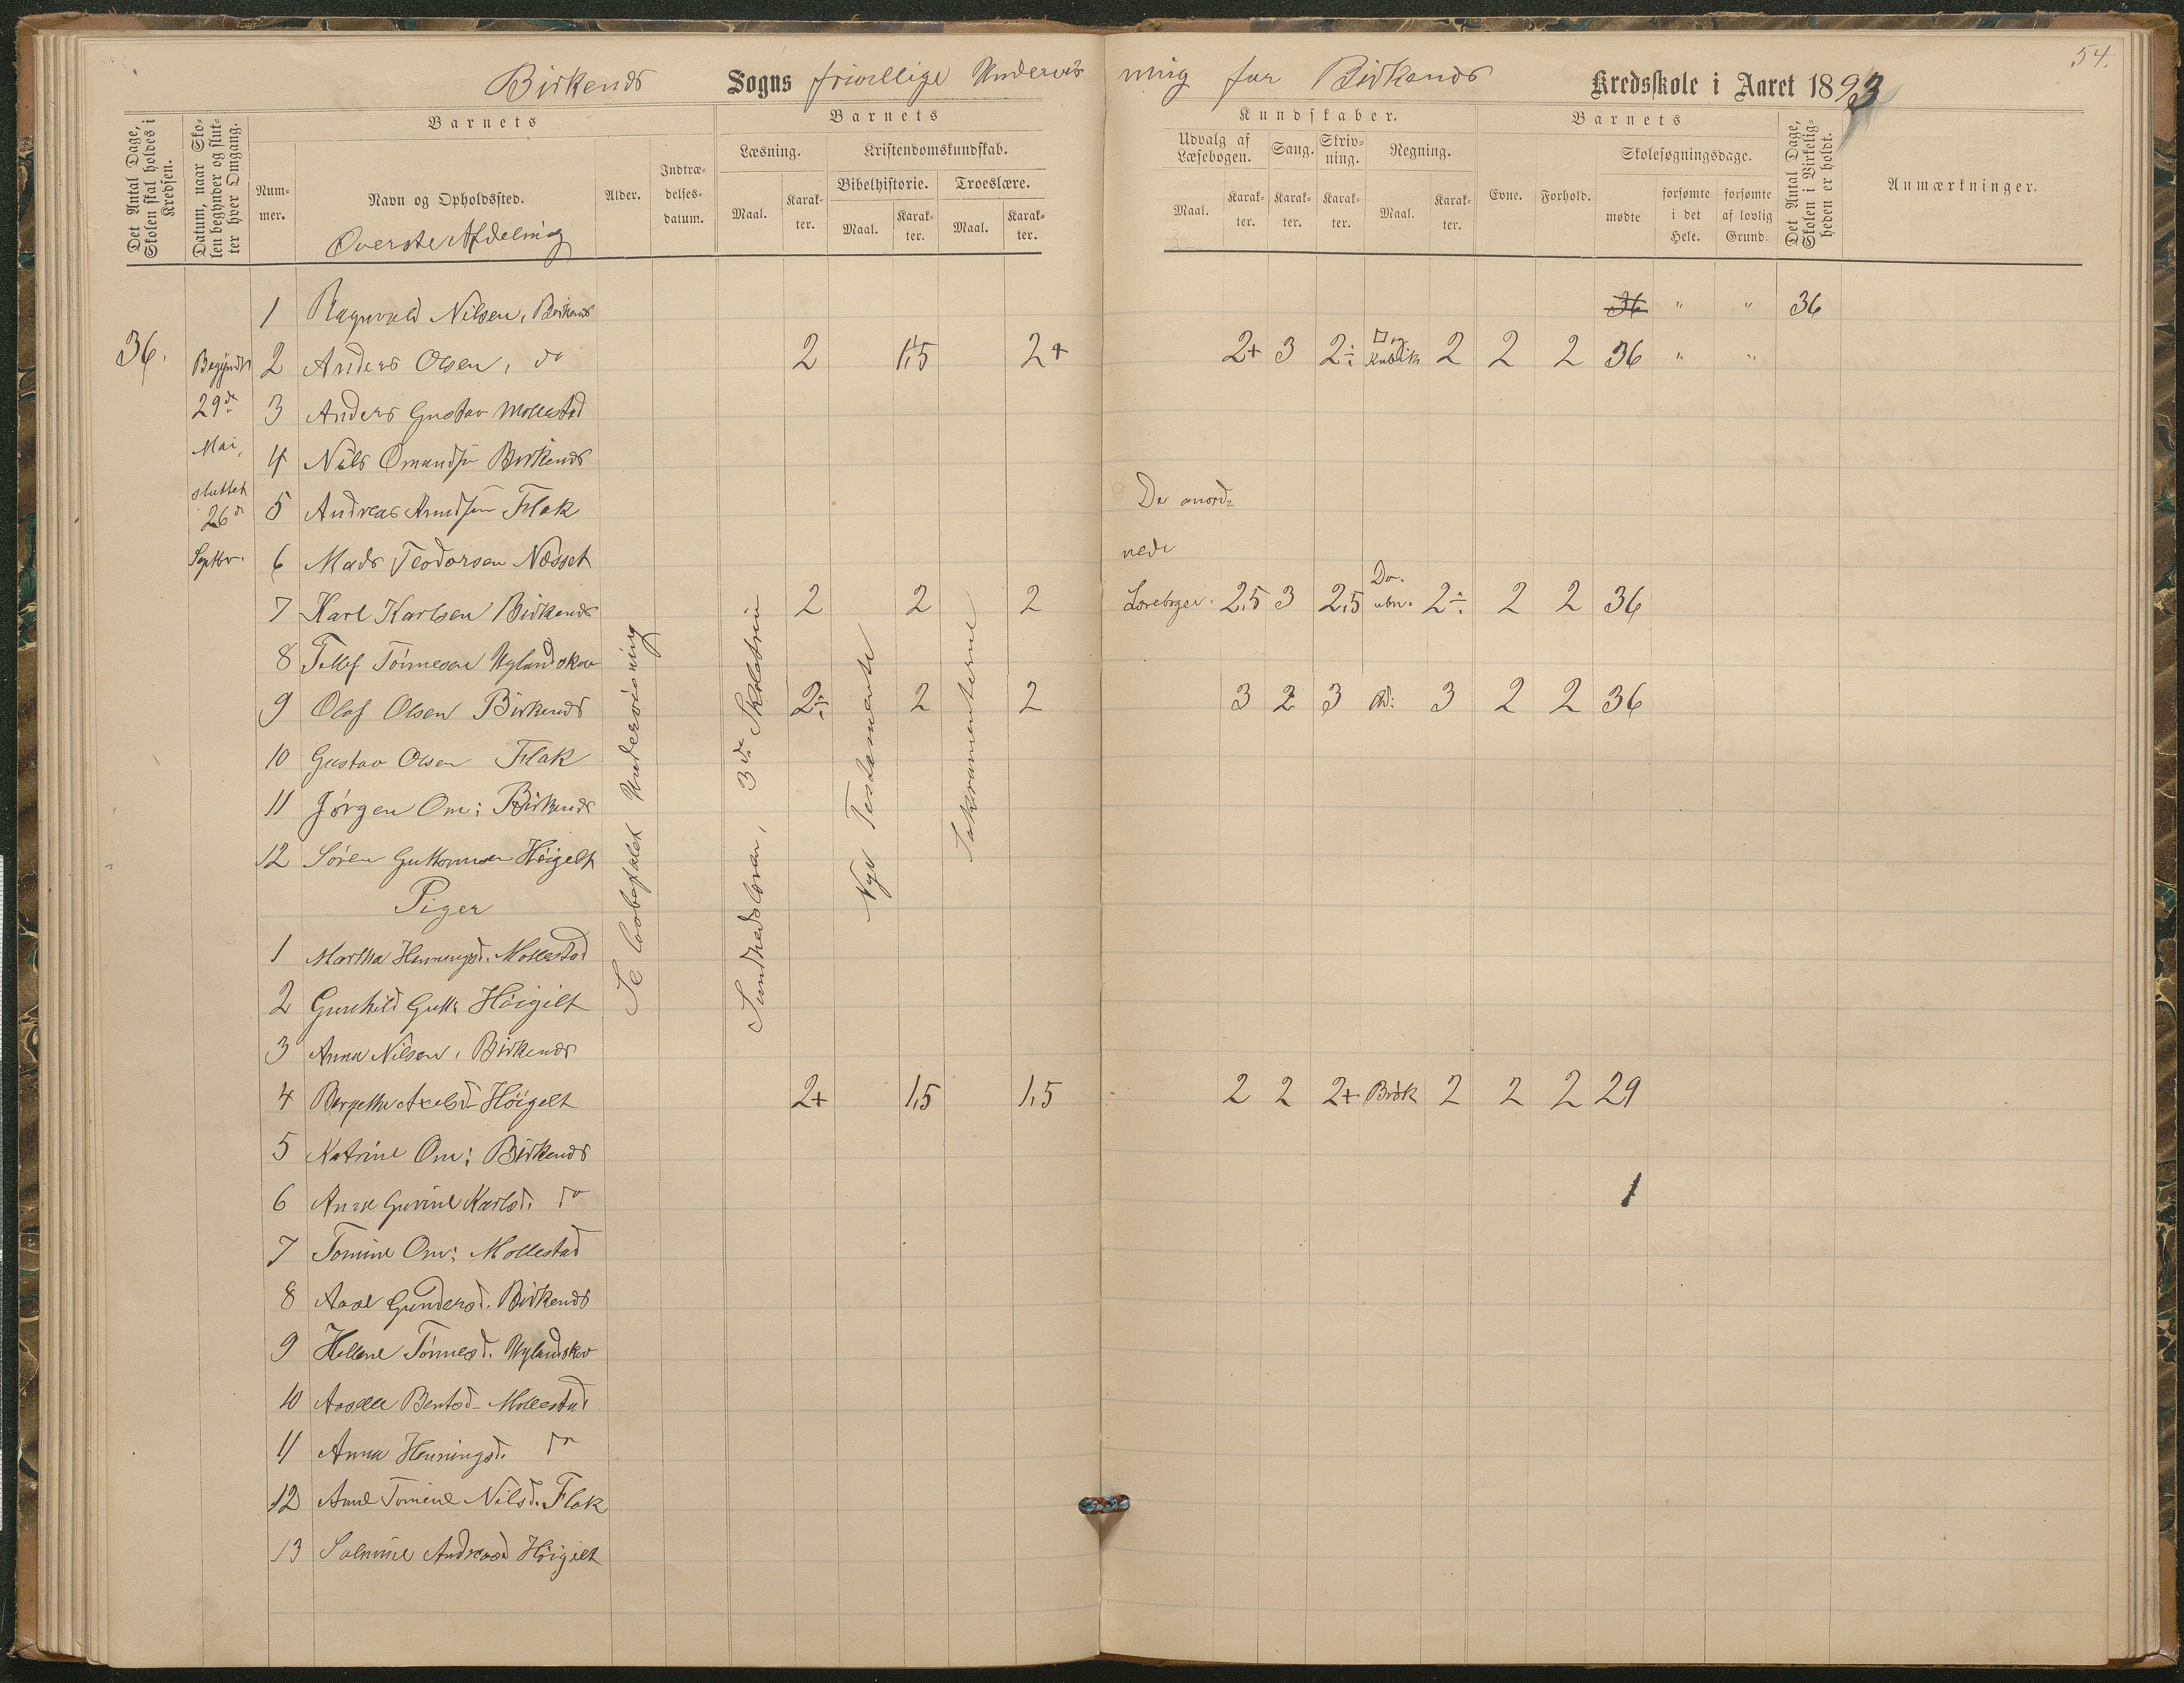 54.
Birkenes Sogns frivillige Undervisning for Birkenes Kredsskole i Aaret 1893
Det Antal Dage, Skolen skal holdes i Kredsen.
Datum, naar Skolen begynder og slutter hver Omgang.
Barnets
Nummer.
Navn og Opholdssted.
Øverste Afdeling
Alder.
Indtrædelsesdatum.
Barnets
Læsning.
Maal.
Karakter.
Kristendomskundskab.
Bibelhistorie.
Maal.
Karakter.
Troeslære.
Maal.
Karakter.
Kundskaber.
Udvalg af Læsebogen.
Maal.
Karakter.
Sang.
Karakter.
Skrivning.
Karakter.
Regning.
Maal.
Karakter.
Barnets
Evne.
Forhold.
Skolesøgningsdage.
mødte
forsømte i det Hele.
forsømte af lovlig Grund.
Det Antal Dage, Skolen i Virkeligheden er holdt.
Anmærkninger.
36.
Begyndt
29de
Mai,
sluttet
26d
Septbr.
1 Ragnvald Nilsen, Birkenes 36 " " 36
2 Anders Olsen, do 2 1,5 2+ 2+ 3 2÷ Kubik 2 2 2 36 " "
3 Anders Gustav Mollestad
4 Nils Omundsen Birkenes
5 Andreas Knudsen Flak
6 Mads Teodorsen Næsset
7 Karl Karlsen Birkenes 2 2 2 2,5 3 2,5 Do. ubn. 2÷ 2 2 36
8 Tellef Tørresen Uglandskar
9 Olaf Olsen Birkenes 2÷ 2 2 3 2 3 3 2 2 36
10 Gustav Olsen Flak
11 Jørgen Om: Birkenes
12 Søren Guttormsen Høigelt
Piger
1 Martha Henningsd. Mollestad
2 Gunhild Gutt: Høigilt
3 Anna Nilsen, Birkenes
4 Bergethe Axelsd. Høigelt 2+ 1,5 1,5 2 2 2+ Brøk 2 2 2 29
5 Katrine Om: Birkenes
6 Anne Gurine Karlsd. do
7 Tomine Om: Mollestad
8 Aase Gundersd. Birkenes
9 Hellene Tørresd. Uglandskar
10 Aasille Bentsd. Mollestad
11 Anna Henningsd. do
12 Anne Tomine Nilsd. Flak
13 Salmine Andreasd Høigilt
Se lovbefalet Undervisning
Sundhedslæren, 3de Skoletrin
Nye Testamente
Sakramenterne
De anordnede
Lærebøger.
1